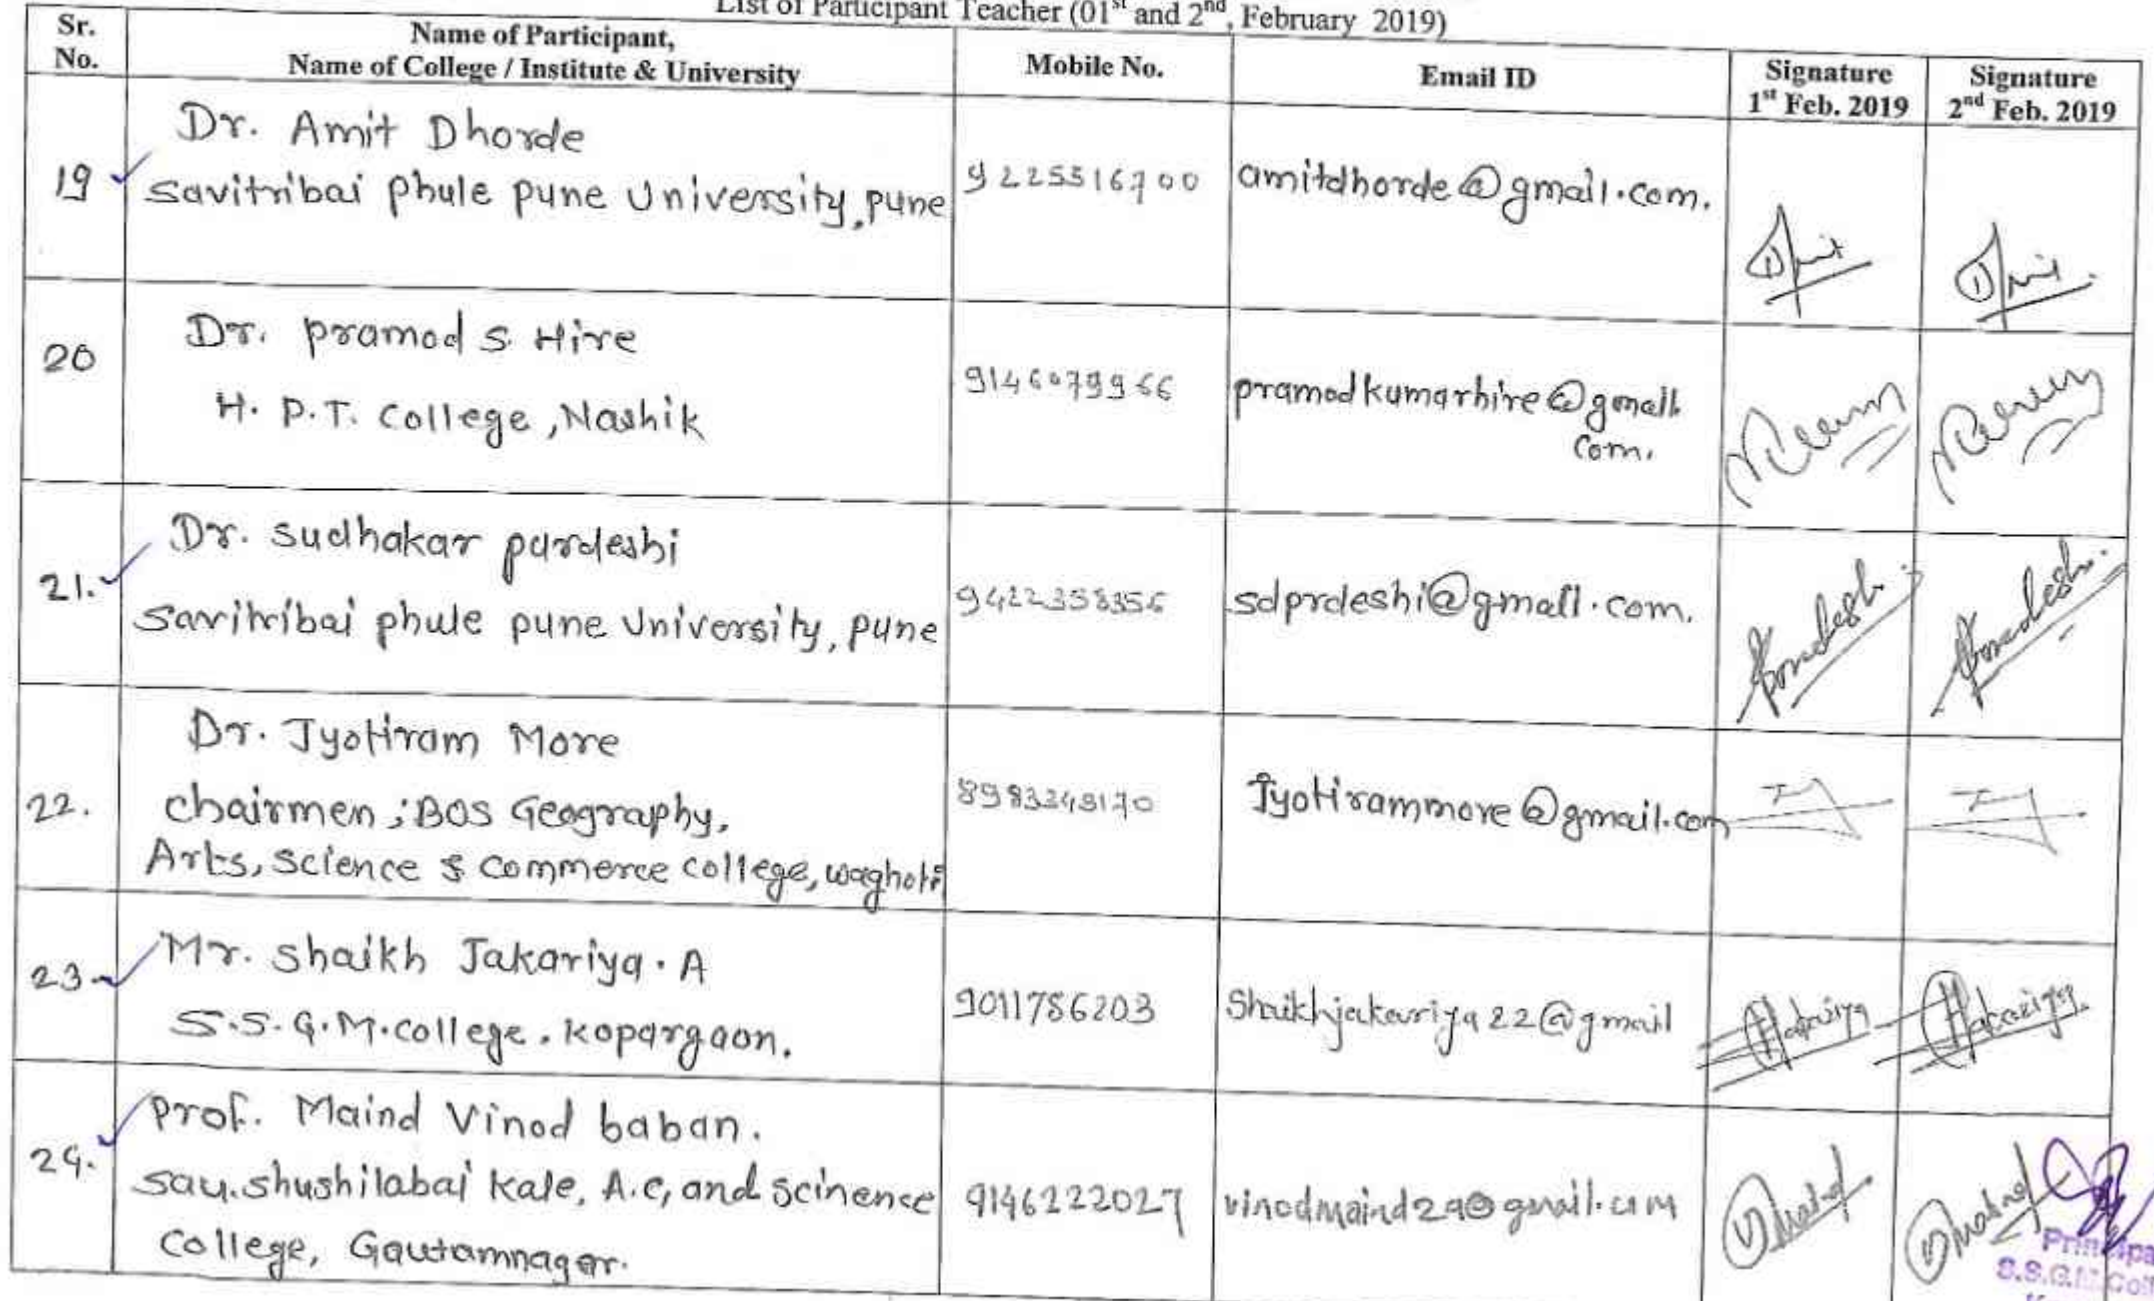 List of Participant Teacher (01st and 2nd, February 2019)
Sr. No.
Name of Participant,
Name of College / Institute & University
Mobile No.
Email ID
Signature
1st Feb. 2019
Signature
2nd Feb. 2019
19
Dr. Amit Dhorde
Savitribai phule pune University, pune
9225516700
amitdhorde@gmail.com.
20
Dr. pramod S. Hire
H. P.T. College, Nashik
9146079966
pramodkumarhire@gmail.
com.
21.
Dr. Sudhakar pardeshi
Savitribai phule pune University, pune
9422358356
sdprdeshi@gmail.com.
22.
Dr. Jyotiram More
chairmen; BOS Geography,
Arts, Science & Commerce college, wagholi
Jyotirammore@gmail.com
23
Mr. Shaikh Jakariya. A
S.S.G.M. college. kopargaon.
9011786203
Shaikhjakariya22@gmail
24.
Prof. Maind Vinod baban.
Sau. shushilabai kale, A.C, and scinence
College, Gautamnagar.
9146222027
vinodmaind29@gmail.com
Principa
S.S.G.M.Col